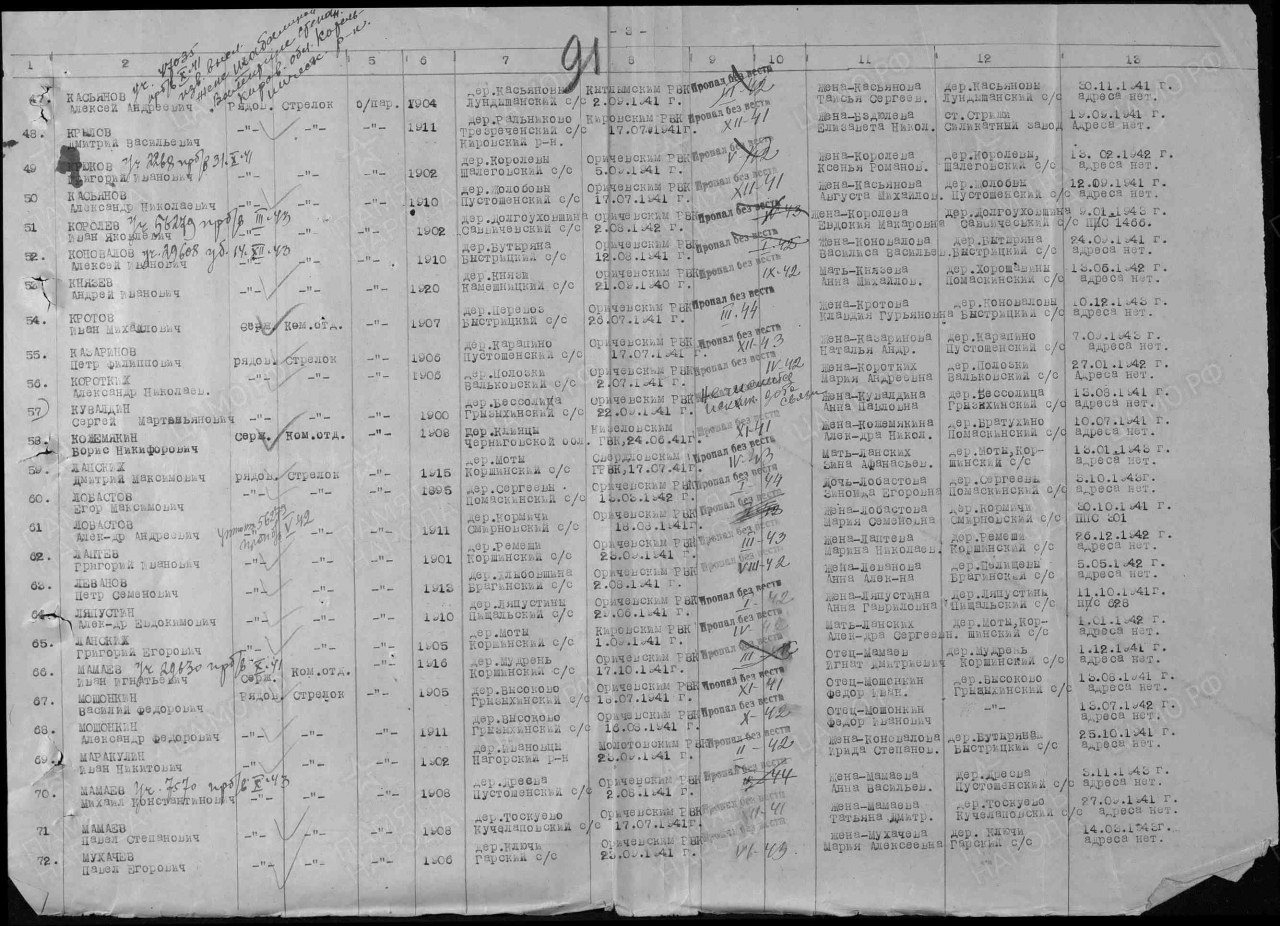 - 3 -
91
1 2 5 6 7 8 9 10 11 12 13
уч. 47035
пр/б X-41
47. КАСЬЯНОВ дер.Касьяновы РВК Пропал без вести Жена-Касьянова дер.Касьяновы 30.11.1941 г.
Алексей Андреевич Рядов. Стрелок о/пар. 1904 Лундышанский с/с 2.09.1941 г. Таисья Сергеев. Лундышанский с/с адреса нет.
48. КРЫЛОВ -"- -"- -"- 1911 дер.Ральниково Кировским РВК Пропал без вести ст.Стрижи 19.09.1941 г.
Дмитрий Васильевич Трезреченский с/с 17.07.1941г. XII-41 Елизавета Никол. Силикатный завод Адреса нет.
Кировский р-н.
49 КРЮКОВ Уч 2268 пр/б 31.X-41 дер.Королевы Оричевским РВК Пропал без вести Жена-Королева дер.Королевы, 13.02.1942 г.
Григорий Иванович -"- -"- -"- 1902 Шалеговский с/с 5.09.1941 г. Ксенья Романов. Шалеговский с/с адреса нет.
50 КАСЬЯНОВ дер.Жолобовы Оричевским РВК Пропал без вести Жена-Касьянова дер.Жолобы 12.09.1941 г.
Александр Николаевич -"- -"- -"- 1910 Пустошенский с/с 17.07.1941 г. XII-41 Августа Михайлов. Пустошенский с/с адреса нет.
51 КОРОЛЕВ Уч 56249 пр/б III-43 дер.Долгоуховщина Оричевским РВК Пропал без вести Жена-Королева дер.Долгоуховщина 9.01.1943 г.
Иван Яковлевич -"- -"- -"- 1902 Савычевский с/с 2.08.1942 г. Евдокия Макаровна Савычевский с/с ППС 1466.
52. КОНОВАЛОВ уч. 29608 уб. 14.XII-43 дер.Бутыряна Оричевским РВК Пропал без вести Жена-Коновалова дер.Бытыряна 24.09.1941 г.
Алексей Иванович -"- -"- -"- 1910 Быстрицкий с/с 12.08.1941 г. Василиса Васильев. Быстрицкий с/с адреса нет.
53 КНЯЗЕВ дер.Князи Оричевским РВК Пропал без вести Мать-Князева дер.Хорошавины 13.05.1942 г.
Андрей Иванович -"- -"- -"- 1920 Камешницкий с/с 21.09.1940 г. IX-42 Анна Михайлов. Помаскинский с/с адреса нет.
54. КРОТОВ дер.Перевоз Оричевским РВК Пропал без вести Жена-Кротова дер.Коноваловы 10.12.1943 г.
Иван Михайлович серж. Ком.отд. -"- 1907 Быстрицкий с/с 26.07.1941 г. III-44 Клавдия Гурьяновна Быстрицкий с/с адреса нет.
55. КАЗАРИНОВ дер.Карапино Оричевским РВК Пропал без вести Жена-Казаринова дер.Карапино 7.09.1943 г.
Петр Филиппович рядов. Стрелок -"- 1906 Пустошенский с/с 17.07.1941 г. XII-43 Наталья Андр. Пустошенский с/с адреса нет.
56. КОРОТКИХ -"- -"- -"- 1906 дер.Полозки Оричевским РВК Пропал без вести Жена-Коротких дер.Полозки 27.01.1942 г.
Александр Николаев. Вальковский с/с 2.07.1941 г. IV-42 Мария Андреевна Вальковский с/с адреса нет.
57) КУВАЛДИН дер.Бессолица Оричевским РВК Жена-Кувалдина дер.Бессолица 13.08.1941 г.
Сергей Мартемьянович -"- -"- -"- 1900 Грызыхинский с/с 22.09.1941 г. Анна Павловна Грызыхинский с/с адреса нет.
58. КОЖЕМЯКИН Кизеловским Пропал без вести Жена-Кожемякина дер.Братухино 10.07.1941 г.
Борис Никифорович Серж. Ком.отд. -"- 1908 Черниговской обл. ГВК,24.06.41г. XI-41 Алек-дра Никол. Помаскинский с/с адреса нет.
59. ЛАНСКИХ дер.Моты Свердловским Пропал без вести Мать-Ланских дер.Моты,Кор- 13.01.1943 г.
Дмитрий Максимович рядов. Стрелок -"- 1915 Коршинский с/с ГРВК,17.07.41г. IV-43 Зина Афанасьев. шинский с/с адреса нет.
60. ЛОБАСТОВ -"- -"- -"- 1895 дер.Сергеевы Оричевским РВК Пропал без вести Дочь-Лобастова дер.Сергеевы 3.10.1943г.
Егор Максимович Помаскинский с/с 13.03.1942 г. Зинаида Егоровна Помаскинский с/с адреса нет.
61 ЛОБАСТОВ дер.Кормичи Оричевским РВК Пропал без вести Жена-Лобастова дер.Кормичи 30.10.1941 г.
Алек-др Андреевич -"- -"- 1911 Смирновский с/с 18.08.1941 г. Мария Семеновна Смирновский с/с ППС 301
62. ЛАПТЕВ дер.Ремеши Оричевским РВК Пропал без вести Жена-Лаптева дер.Ремеши 26.12.1942 г.
Григорий Иванович -"- -"- -"- 1901 Коршинский с/с 23.09.1941 г. III-43 Марина Николаев. Коршинский с/с адреса нет.
63. ЛЕВАНОВ Оричевским РВК Пропал без вести Жена-Леванова 5.05.1942 г.
Петр Семенович -"- -"- -"- 1913 Брагинский с/с 2.08.1941 г. VIII-42 Анна Алек-на Брагинский с/с адреса нет.
64. ЛЯПУСТИН дер.Ляпустины Оричевским РВК Пропал без вести Жена-Ляпустина дер.Ляпустины 11.10.1941г.
Алек-др Евдокимович -"- -"- -"- 1910 Пищальский с/с 21.06.1941 г. I-42 Анна Гавриловна Пищальский с/с ППС 628
65. ЛАНСКИХ дер.Моты Кировским РВК Пропал без вести Мать-Ланских дер.Моты,Кор- 1.01.1942 г.
Григорий Егорович -"- -"- -"- 1905 Коршинский с/с 1.09.1941 г. Алек-дра Сергеевн. шинский с/с адреса нет.
66. МАМАЕВ Уч. 29830 пр/б X-41 -"- 1916 дер.Мудрень Оричевским РВК Пропал без вести Отец-Мамаев дер.Мудрень 1.12.1941 г.
Иван Игнатьевич Серж. Ком.отд. Коршинский с/с 17.10.1941г. Игнат Дмитриевич Коршинский с/с адреса нет.
67. МОШОНКИН дер.Высоково Оричевским РВК Пропал без вести Отец-Мошонкин дер.Высоково 13.08.1941 г.
Василий Федорович Рядов. Стрелок -"- 1905 Грызыхинский с/с 18.07.1941 г. XI-41 Федор Иван. Грызыхинский с/с адреса нет.
68. МОШОНКИН дер.Высоково Оричевским РВК Пропал без вести Отец-Мошонкин -"- 13.07.1942 г.
Александр Федорович -"- -"- -"- 1911 Грызыхинский с/с 16.08.1941 г. X-42 Федор Иванович адреса нет.
69. МАРАКУЛИН дер.Ивановцы Молотовским РВК Пропал без вести Жена-Коновалова дер.Бутыряна 25.10.1941 г.
Иван Никитович -"- -"- -"- 1902 Нагорский р-н 23.09.1941 г. II-42 Ирида Степанов. Быстрицкий с/с адреса нет.
70. МАМАЕВ Уч. 7570 пр/б X-43 дер.Дресва Оричевским РВК Пропал без вести Жена-Мамаева дер.Дресва 3.11.1943 г.
Михаил Константинович -"- -"- -"- 1908 Пустошенский с/с 2.08.1941 г. Анна Васильев. Пустошенский с/с адреса нет.
71 МАМАЕВ дер.Тоскуево Оричевским РВК Пропал без вести Жена-Мамаева дер.Тоскуево 27.09.1941 г.
Павел Степанович -"- -"- -"- 1908 Кучелаповский с/с 17.07.1941г. XII-41 Татьяна Дмитр. Кучелаповский с/с адреса нет.
72. МУХАЧЕВ дер.Ключи Оричевским РВК Пропал без вести Жена-Мухачева дер. Ключи 14.03.1943г.
Павел Егорович -"- -"- -"- 1906 Гарский с/с 23.09.1941 г. VI-43. Мария Алексеевна Гарский с/с адреса нет.